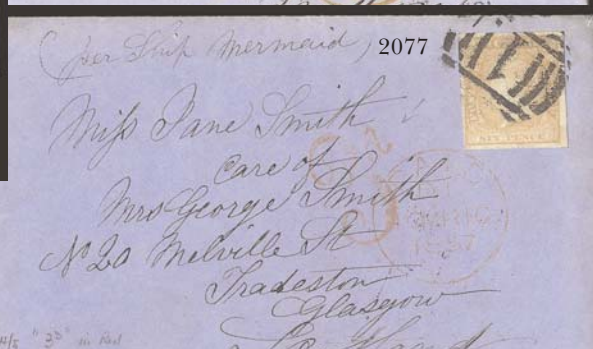 (per Ship Mermaid) 2077
Miss Jane Smith
Care of
Mrs George Smith
No 20 Melville St
Tradeston
Glasgow
SIX PENCE
"33" in Red